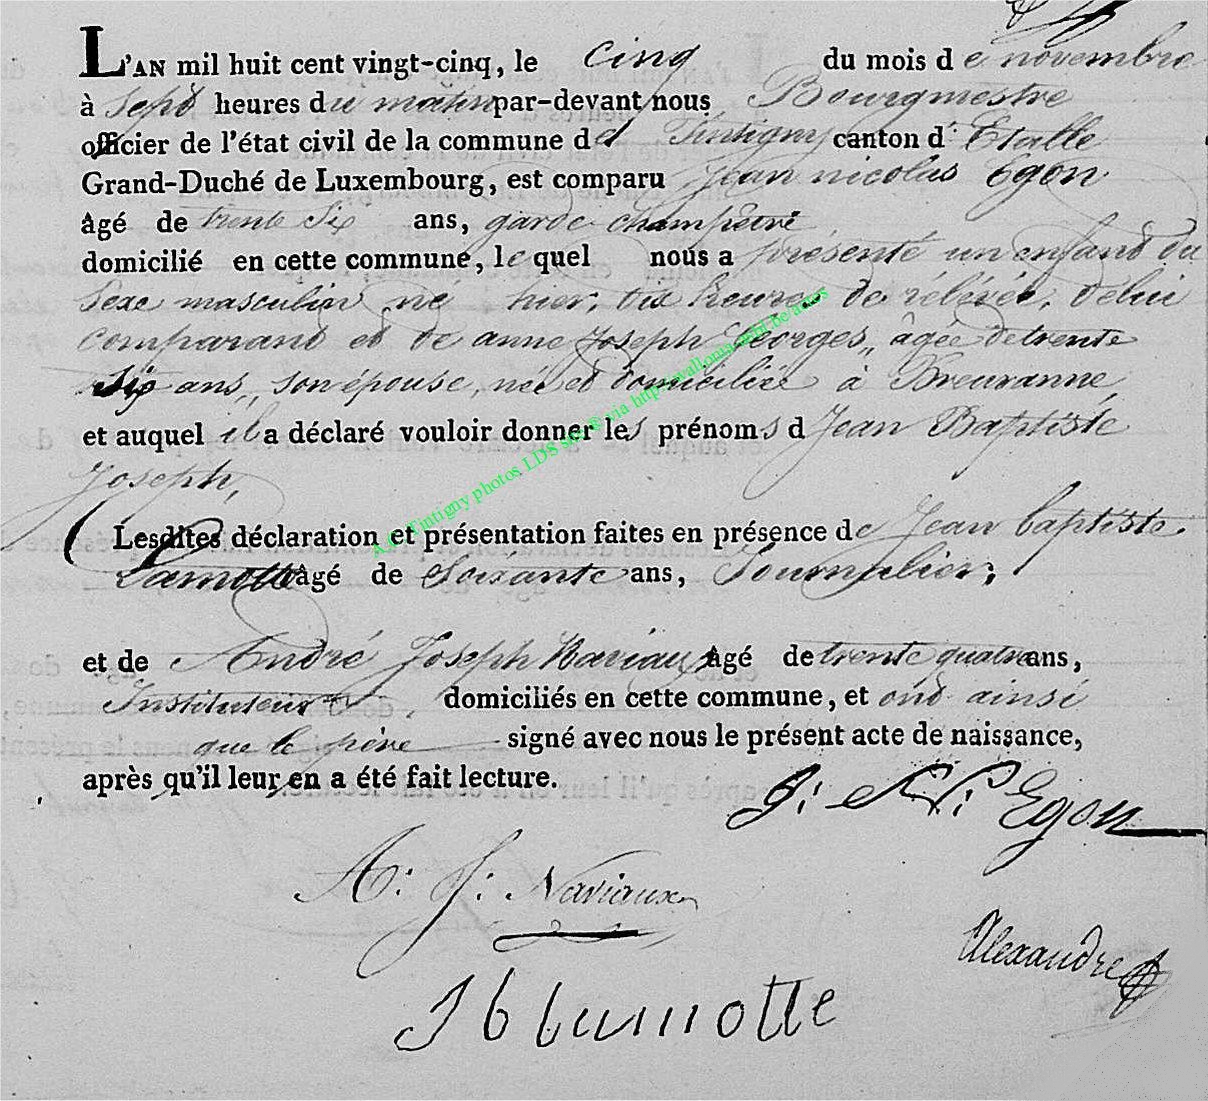 L'AN mil huit cent vingt-cinq, le cinq du mois de novembre
à sept heures du matin par-devant nous Bourgmestre
officier de l'état civil de la commune de Tintigny canton d'Etalle
Grand-Duché de Luxembourg, est comparu Jean nicolas Egon
âgé de trente Six ans, garde champêtre
domicilié en cette commune, lequel nous a présenté un enfant du
Sexe masculin né hier, dix heures de rélévée, de lui
comparant et de anne Joseph Georges,, âgée de trente
Six ans,, son épouse, née et domiciliée à Breuvanne,
et auquel il a déclaré vouloir donner les prénoms d Jean Baptiste
Joseph,
Lesdites déclaration et présentation faites en présence de Jean baptiste
Lamotte âgé de Soixante ans, Journalier,
et de André Joseph Naviaux âgé de trente quatre ans,
Instituteur domiciliés en cette commune, et ont ainsi
que le père signé avec nous le présent acte de naissance,
après qu'il leur en a été fait lecture.
J: N: Egon
A: J: Naviaux
Alexandre
J b lamotte
Tintigny photos LDS via